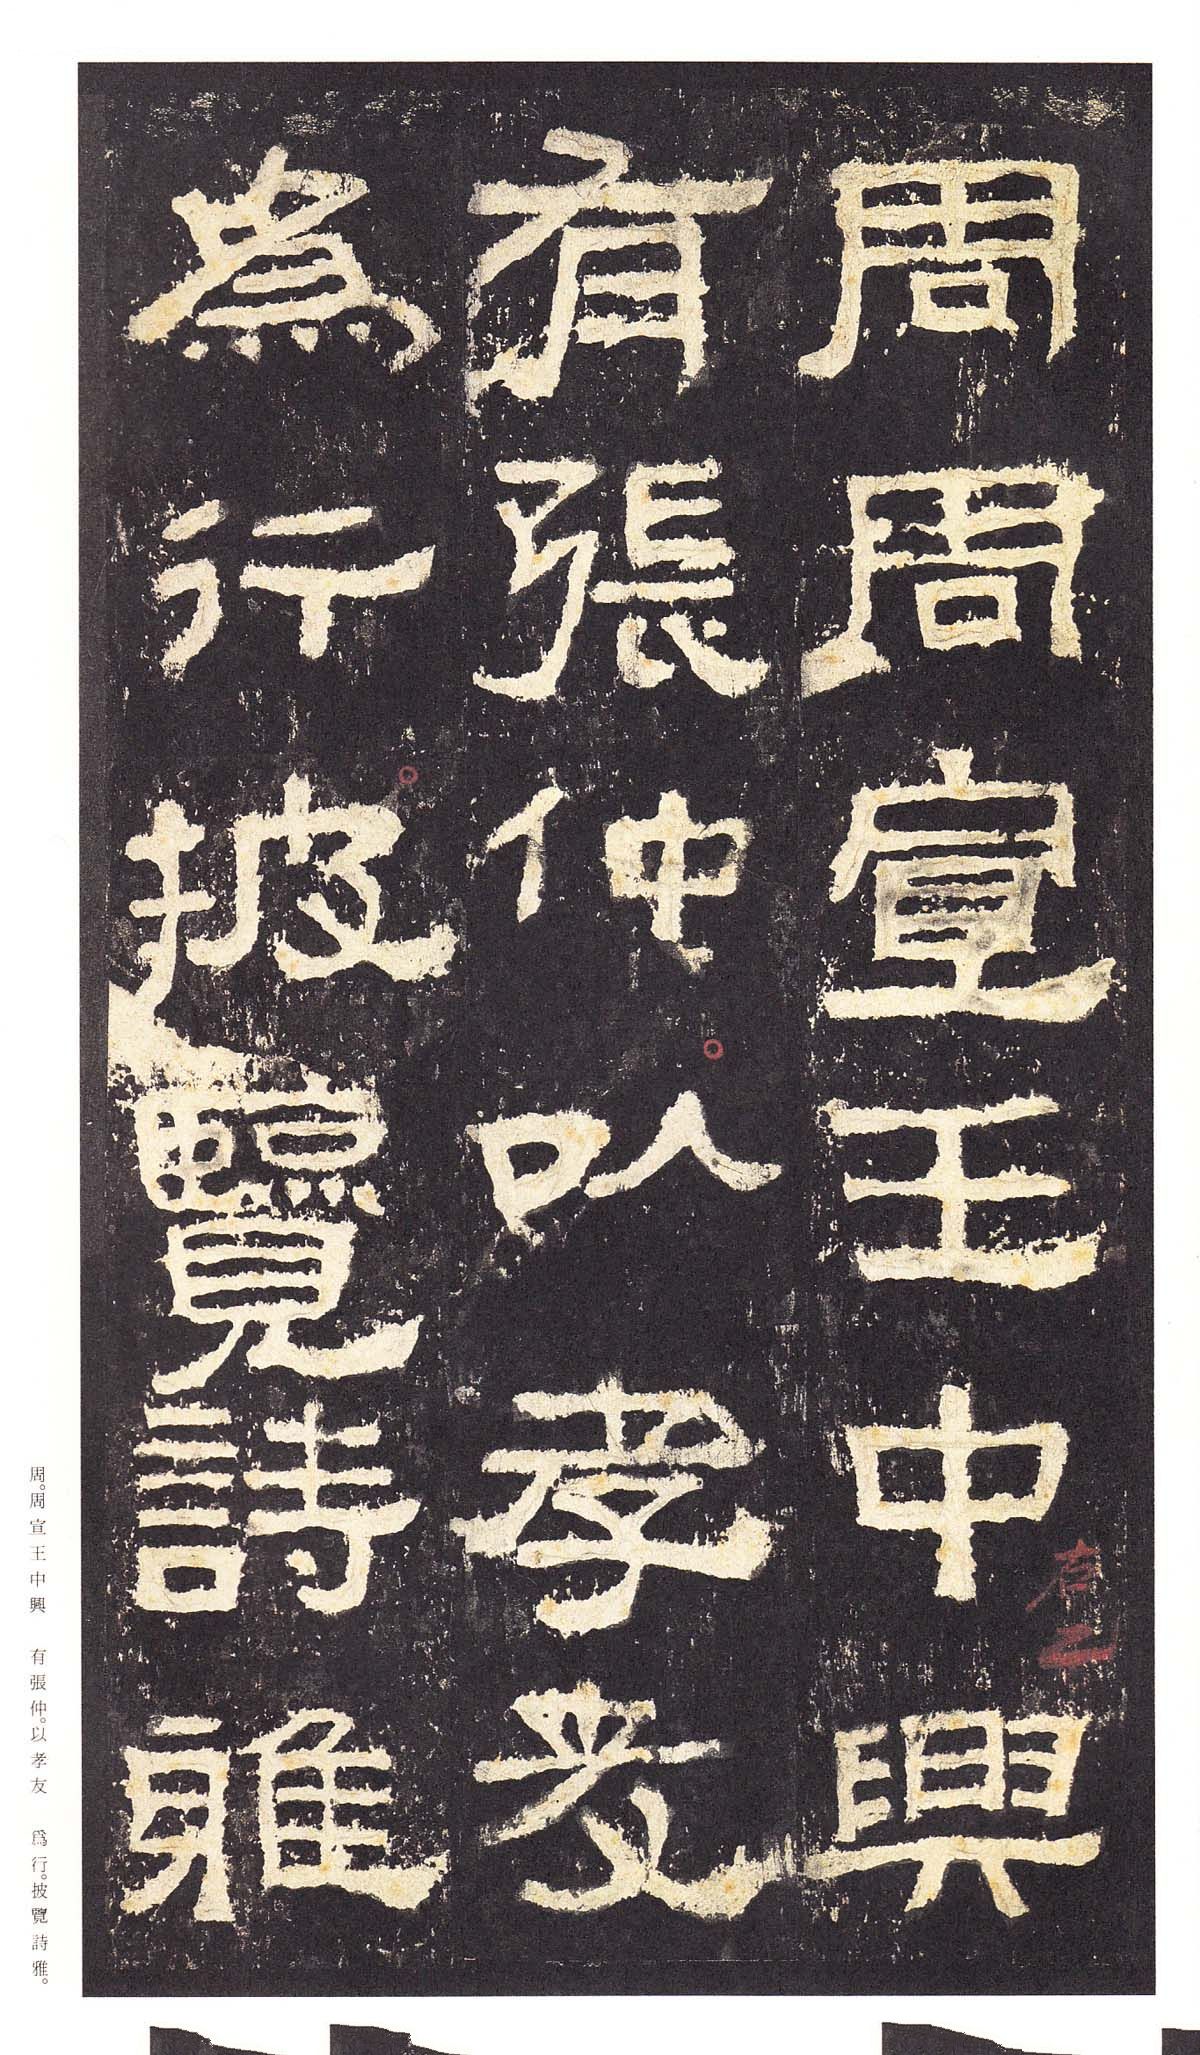 周周宣王中興
有張仲以孝友
為行披覽詩雅
周。周宣王中興 有張仲。以孝友 爲行。披覽詩雅。